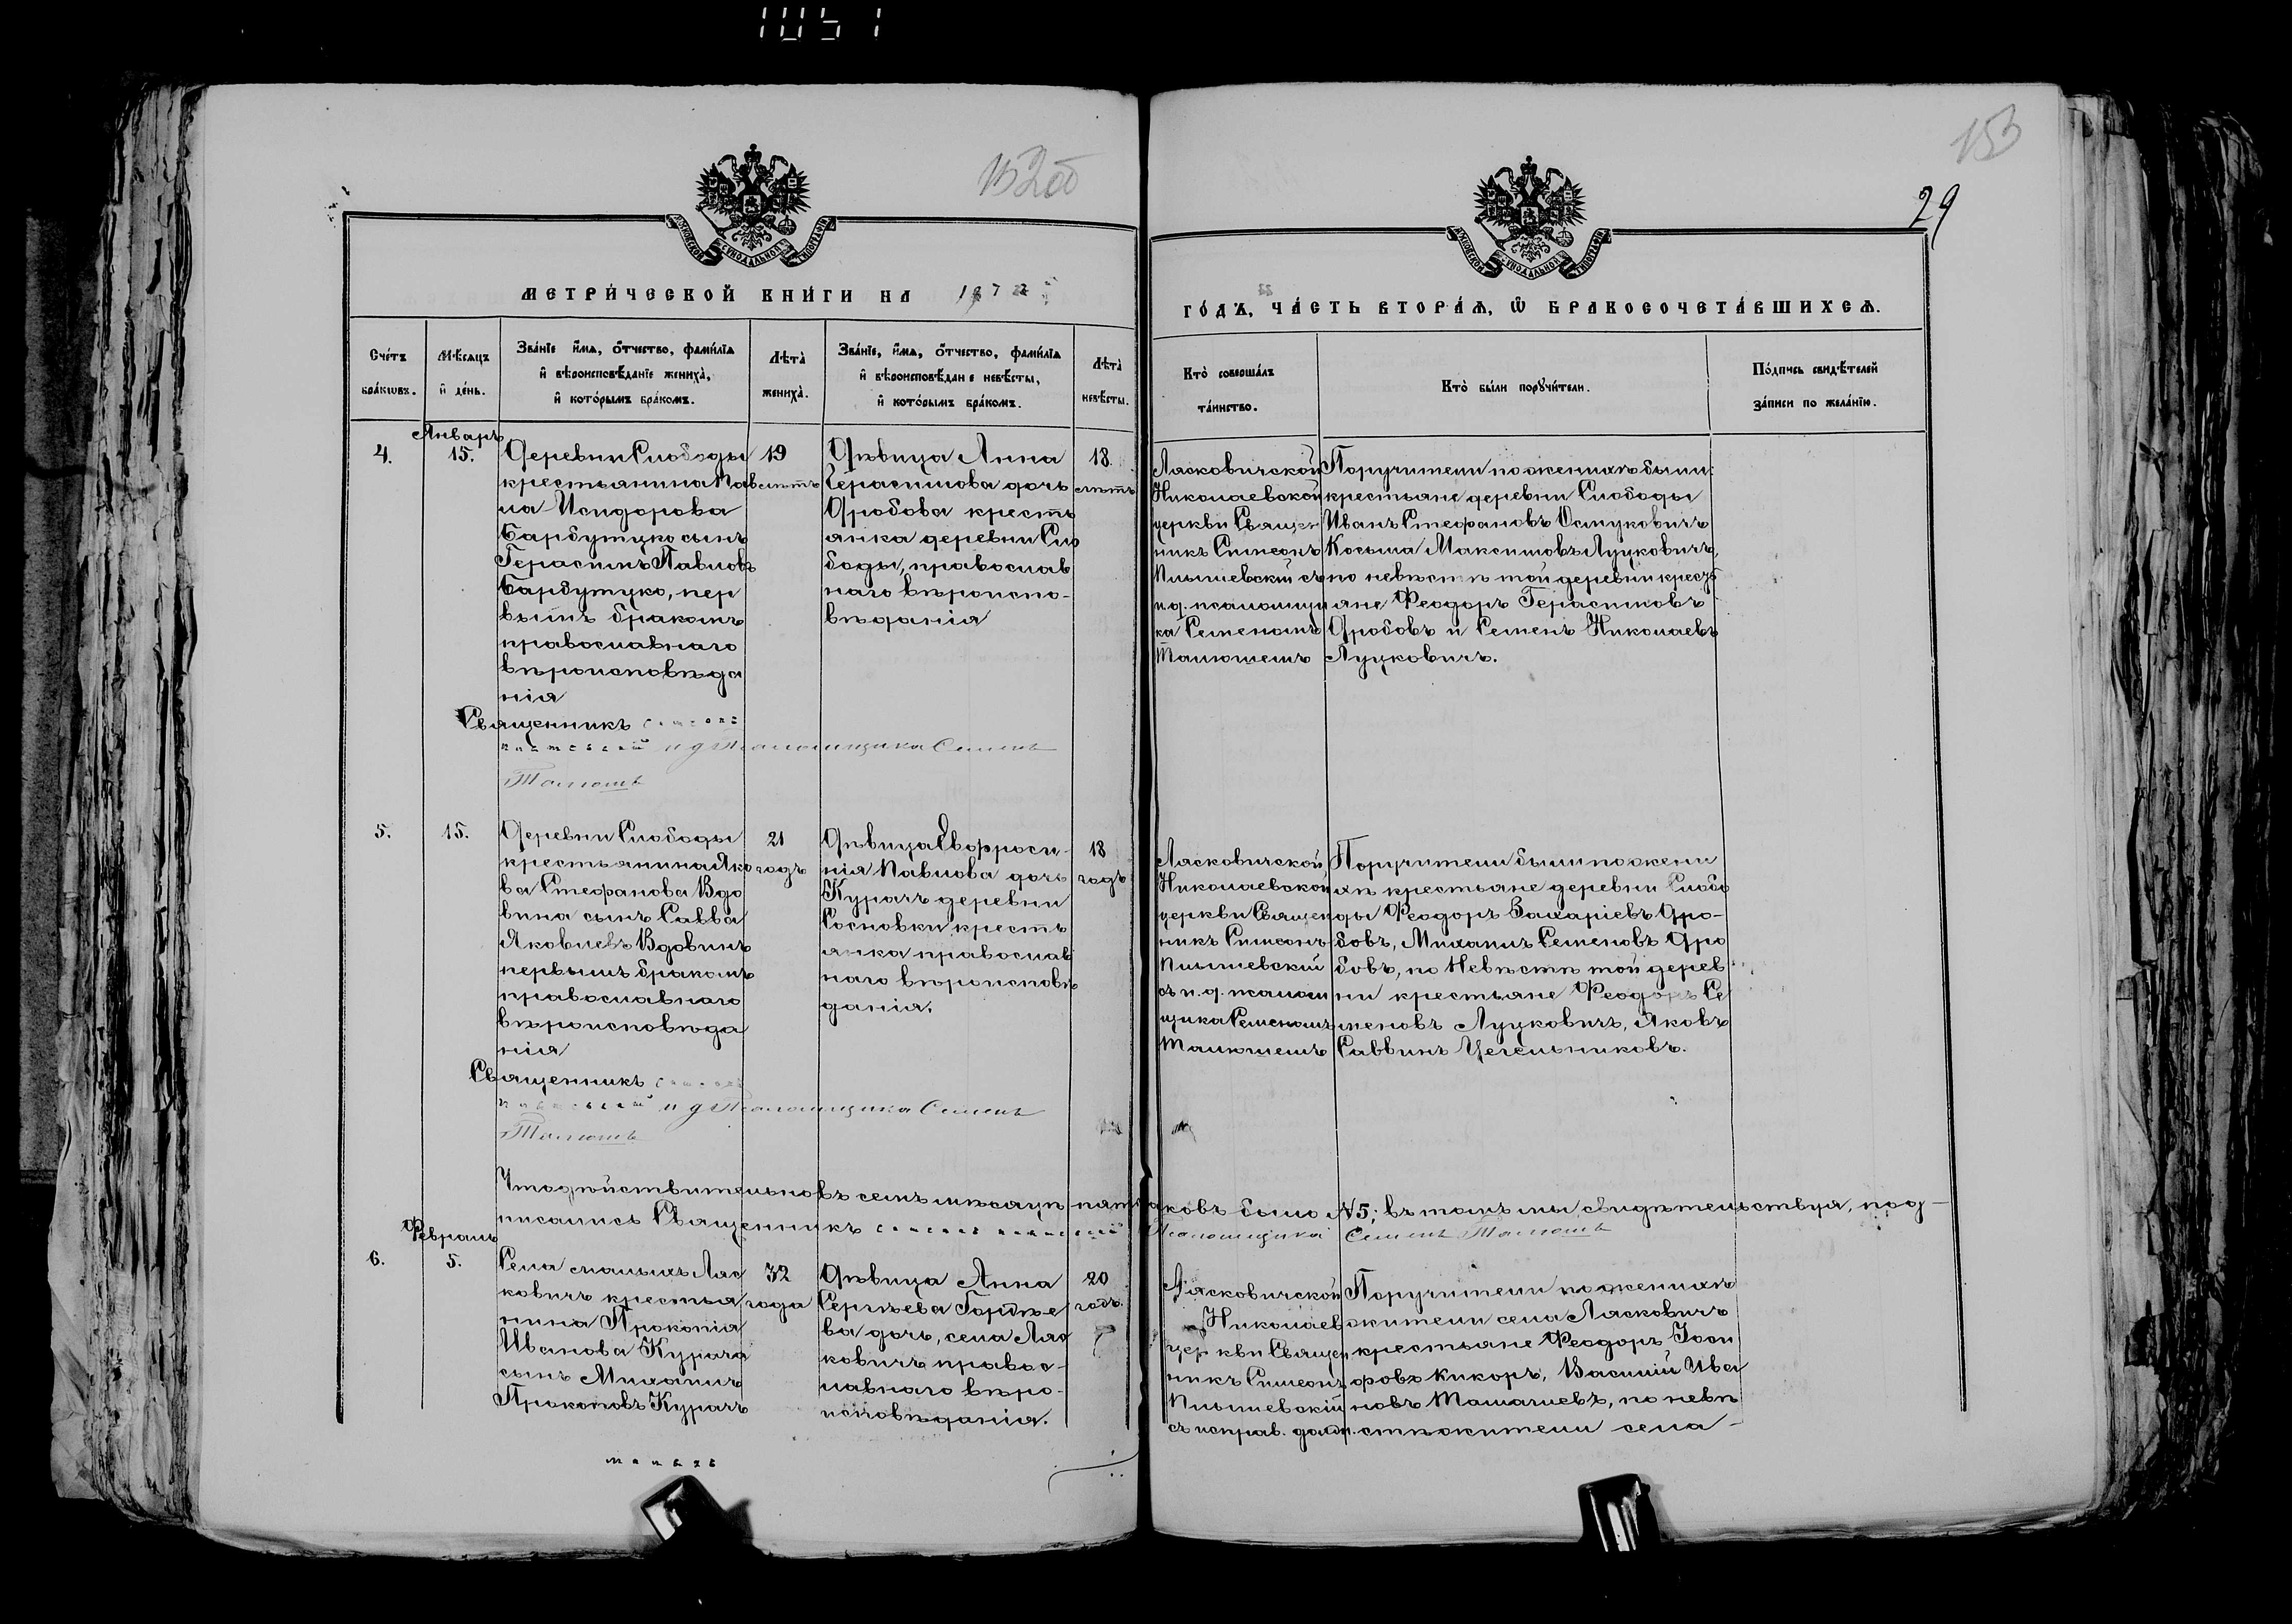 1051
152 об
153
29
МОСКОВСКОЙ СѴНОДАЛЬНОЙ ТИПОГРАФІИ
МОСКОВСКОЙ СѴНОДАЛЬНОЙ ТИПОГРАФІИ
МЕТРИ́ЧЕСКОЙ КНИ́ГИ НА 1872
ГО́ДЪ, ЧА́СТЬ ВТОРА́Ѧ, Ѽ БРАКОСОЧЕТА́ВШИХСѦ.
Сче́тъ
бра́кѡвъ.
Мѣ́сѧцъ
и҆ де́нь.
Зва́нїе и҆́мѧ, ѻ҆́тчество, фами́лїѧ
и҆ вѣроисповѣ́данїе жениха̀,
и҆ кото́рымъ бра́комъ.
Лѣ́та̀
жениха̀.
Зва́нїе, и҆́мѧ, ѻ҆́тчество, фами́лїѧ
и҆ вѣроисповѣ́данїе невѣ́сты,
и҆ кото́рымъ бра́комъ.
Лѣ́та̀
невѣ́сты.
Кто̀ соверша́лъ
та́инство.
Кто̀ бы́ли порꙋчи́тели.
По́дпись свидѣ́телей
за́писи по жела́нїю.
Январь
4.
15.
Деревни Слободы
крестьянина Пав
ла Исидорова
Барбутуко сынъ
Герасимъ Павловъ
Барбутуко, пер
вымъ бракомъ
православнаго
вѣроисповѣда
нія
19
лѣтъ
Дѣвица Анна
Герасимова дочь
Дробова кресть
янка деревни Сло
боды, православ
наго вѣроиспо-
вѣданія
18.
лѣтъ
Лясковичской
Николаевской
церкви Священ
никъ Симеонъ
Пышевскій съ
и.д. псаломщи
ка Семеномъ
Талюшемъ
Поручители по женихѣ были:
крестьяне деревни Слободы
Иванъ Стефановъ
Косьма Максимовъ Луцковичъ,
по невѣстѣ той деревни кресть
яне Феодоръ Герасимовъ
Дробовъ и Семенъ Николаевъ
Луцковичъ.
Священникъ
и д Псаломщика Семенъ
Талюшъ
5.
15.
Деревни Слободы
крестьянина Яко
ва Стефанова Вдо
вина сынъ Савва
Яковлевъ Вдовинъ
первымъ бракомъ
православнаго
вѣроисповѣда
нія
21
годъ
Дѣвица Евфроси-
нія Павлова дочь
Курачъ деревни
Сосновки кресть
янка православ
наго вѣроисповѣ
данія.
18
годъ
Лясковичской
Николаевской
церкви Священ
никъ Симеонъ
Пышевскій
съ и.д. псалом
щика Семеномъ
Талюшемъ
Поручители были по жени
хѣ крестьяне деревни Слобо
ды Феодоръ Захаріевъ Дро-
бовъ, Михаилъ Семеновъ Дро
бовъ, по Невѣстѣ той дерев
ни крестьяне Феодоръ Се
меновъ Луцковичъ, Яковъ
Саввинъ Цегельниковъ.
Священникъ
и д Псаломщика Семенъ
Талюшъ
Что дѣйствительно въ семъ мѣсяцѣ пять браковъ было №5; въ томъ мы свидѣтельствуя, под-
писались Священникъ Псаломщика Семенъ Талюшъ
Февраль
6.
5.
Села малыхъ Ляс
ковичъ крестья
нина Прокопія
Иванова Курача
сынъ Михаилъ
Прокоповъ Курачъ
32
года
Дѣвица Анна
Сергѣева Гордѣе
ва дочь, села Ляс
ковичъ правос-
лавнаго вѣро-
исповѣданія.
20
годъ.
Лясковичской
Николаев
церкви Священ
никъ Симеонъ
Пышевскій
съ исправ. долж.
Поручители по женихѣ
жители села Лясковичъ
крестьяне Феодоръ Іоси
фовъ Кикоръ, Василій Ива
новъ Талашевъ, по невѣ
стѣ жители села-
малыхъ